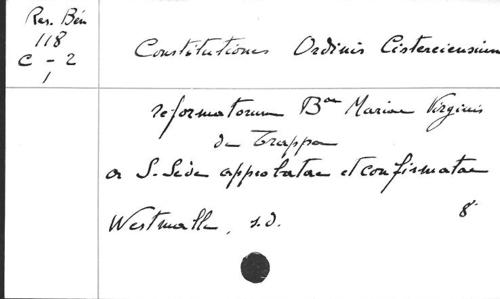 Res. Bén
118
C - 2
1
Constitutiones Ordinis Cisterciensium
reformatorum Bae Mariae Virginis
de Trappa
a S. Sede approbatae et confirmatae
8°
Westmalle, s.d.